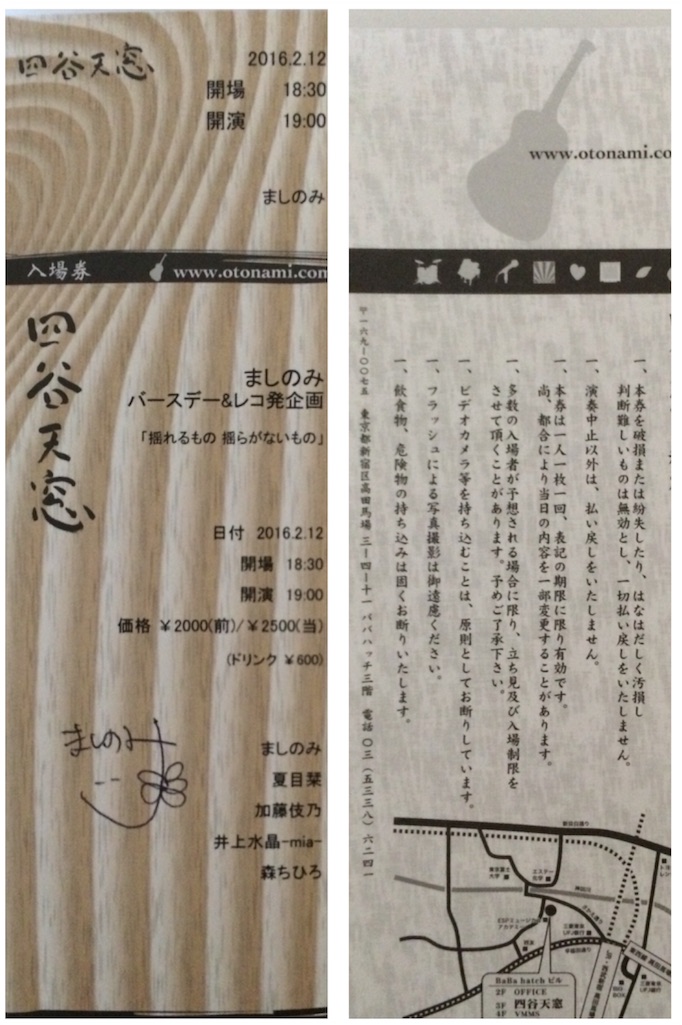 四谷天窓
2016.2.12
開場 18:30
開演 19:00
ましのみ
入場券 www.otonami.com
四谷天窓
ましのみ
バースデー&レコ発企画
「揺れるもの 揺らがないもの」
日付 2016.2.12
開場 18:30
開演 19:00
価格 ￥2000(前)/￥2500(当)
(ドリンク ￥600)
ましのみ
ましのみ
夏目栞
加藤伎乃
井上水晶-mia-
森ちひろ
www.otonami.co
一、本券を破損または紛失したり、はなはだしく汚損し
判断難しいものは無効とし、一切払い戻しをいたしません。
一、演奏中止以外は、払い戻しをいたしません。
一、本券は一人一枚一回、表記の期限に限り有効です。
尚、都合により当日の内容を一部変更することがあります。
一、多数の入場者が予想される場合に限り、立ち見及び入場制限を
させて頂くことがあります。予めご了承下さい。
一、ビデオカメラ等を持ち込むことは、原則としてお断りしています。
一、フラッシュによる写真撮影は御遠慮ください。
一、飲食物、危険物の持ち込みは固くお断りいたします。
〒一六九-〇〇七五 東京都新宿区高田馬場 三-四-十一 ババハッチ三階 電話 〇三（五三三八）六二四一
新目白通り
東京富士
大学
エステー
化学
神田川
ESPミュージック
アカデミー
さかえ通り
三菱東京
UFJ銀行
早稲田通り
BIG
BOX
三菱東京
UFJ銀行
BaBa hatch ビル
2F OFFICE
3F 四谷天窓
4F VMMS